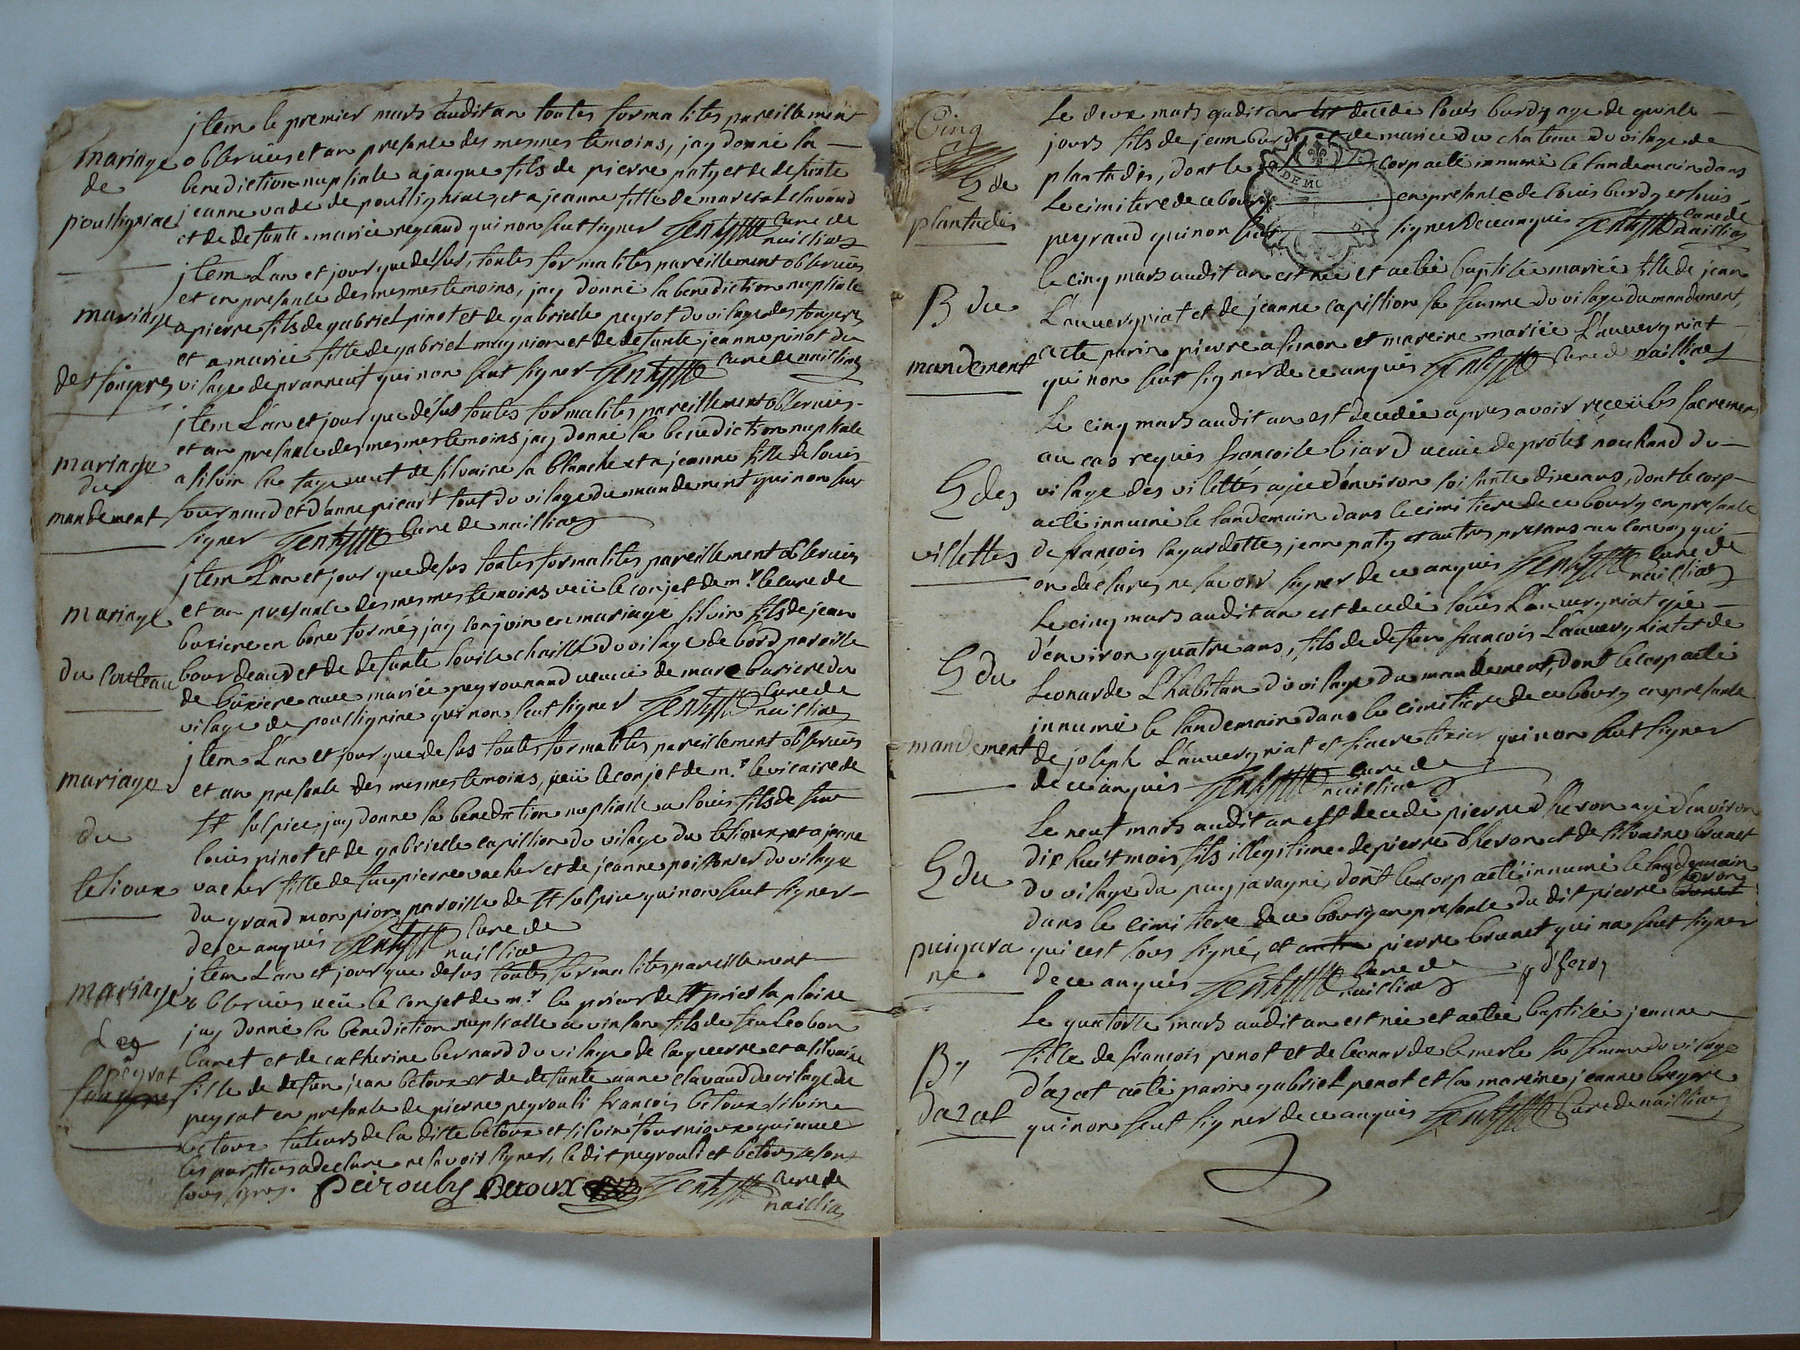 jtem le premier mars audit an toutes formalites pareillement
mariage observées et an presance des mesmes temoins, jay donné la
de benediction nuptiale a jacque fils de pierre paty et de defunte
poulligniac jeanne vade de poulligniac, et a jeanne fille de
et de defunte mariee regaud qui non seut signer curé de
naillias
jtem l'an et jour que desus, toutes formalites pareillement observées
et en presance des mesmes temoins, jay donné la benediction nuptiale
mariage a pierre fils de gabriel pinot et de gabrielle peyrot du vilage des fougeres
et a mariee fille de gabriel magnion et de defunte jeanne pinot du
des fougeres vilage de pranneuit qui non seut signer curé de naillias
jtem l'an et jour que desus toutes formalites pareillement observees
et an presance des mesmes temoins jay donné la benediction nuptiale
mariage a silvin et de silvaine la blanche et a jeanne fille de louis
du
mandement fournaud et d'anne picart tout du vilage du mandement qui non seut
signer curé de naillias
jtem l'an et jour que desus toutes formalites pareillement observées
et an presance des mesmes temoins veü le conjet de mr le curé de
mariage buxiere en bone forme, jay conjoin en mariage silvin fils de jean
du bourdeaud et de defunte louise chaille du vilage de bord paroisse
de buxiere avec mariee peyrounaud veuve de marc buxiere du
vilage de poullignine qui non seut signer curé de
naillias
jtem l'an et jour que desus toutes formalites pareillement observées
mariage et an presance des mesmes temoins, veü le conjet de mr le vicaire de
st sulpice, jay donné la benediction nuptiale a louis fils de feu
du louis pinot et de gabrielle capillion du vilage du lesioux et a jeanne
lesioux vacher fille de feu pierre vacher et de jeanne poissonier du vilage
du grand monpion paroisse de st sulpice qui non seut signer
de ce anquis curé de
naillias
jtem l'an et jour que desus toutes formalites pareillement
mariage observées veü le conjet de mr le prieur de st priest la plaine
jay donné la benediction nuptialle a vinsan fils de feu leobon
des Canet et de catherine bernard du vilage de laguerre et a silvaine
peyrat fille de defun jean betoux et de defunte anne clavaud du vilage de
peyrat en presance de pierre peyrouli francois betoux silvine
betoux tuteurs de la ditte betoux et silvin fournioux qui avec
les parties a declare ne savoir signer, le dit peyrouli et betoux se son
sous signes. Peirouby Betoux curé de
naillias
Cinq
le deux mars audit an est decedé louis burdy agé de quinse
jours fils de jean burdy et de mariee du chateau du vilage de
S de plantadis, dont le corp a eté innumé le landemain dans
plantadis le cimitere de ce bourg en presance de louis burdy et louis
peyraud qui non seut signer de ce anquis curé de
naillias
le cinq mars audit an est née et a eté baptisée mariée fille de jean
B du l'auvergniat et de jeanne capillion sa femme du vilage du mandement,
a eté parin pierre alimon et mareine mariée l'auvergniat
mandement qui non seut signer de ce anquis curé de naillias
le cinq mars audit an est decedée apres avoir reçeü les sacremens
au cas requis francoise biard veuve de nouhaud du
S des vilage des vilettes agée d'environ soisante dix ans, dont le corp
a eté innumé le landemain dans le cimitiere de ce bourg en presance
villettes de françois lagardette, jean paty et autres presans au convoy qui
on declaré ne savoir signer de ce anquis curé de
naillias
Le cinq mars audit an est decedé louis l'auvergniat agé
d'environ quatre ans, fils de defun francois l'auvergniat et de
S du leonarde l'habitan du vilage du mandement, dont le corp a eté
innumé le landemain dans le cimitiere de ce bourg en presance
mandement de joseph l'auvergniat et tixier qui non seut signer
de ce anquis curé de
naillias
Le neuf mars audit an est decedé pierre d'heron agé d'environ
dix huit mois fils illegitime de pierre d'heron et de silvaine brunet
S du du vilage du puy javagne, dont le corp a eté innumé le landemain
dans le cimitiere de ce bourg en presance du dit pierre deron
puigava qui est sous signé, et pierre brunet qui na seut signer
ne de ce anquis curé de
naillias
Le quatorse mars audit an est née et a etée baptisée jeanne
B fille de françois penot et de leonarde lemerle sa femme du vilage
d'azat a eté parin gabriel penot et sa mareine jeanne bregere
dazat qui non seut signer de ce anquis curé de naillias